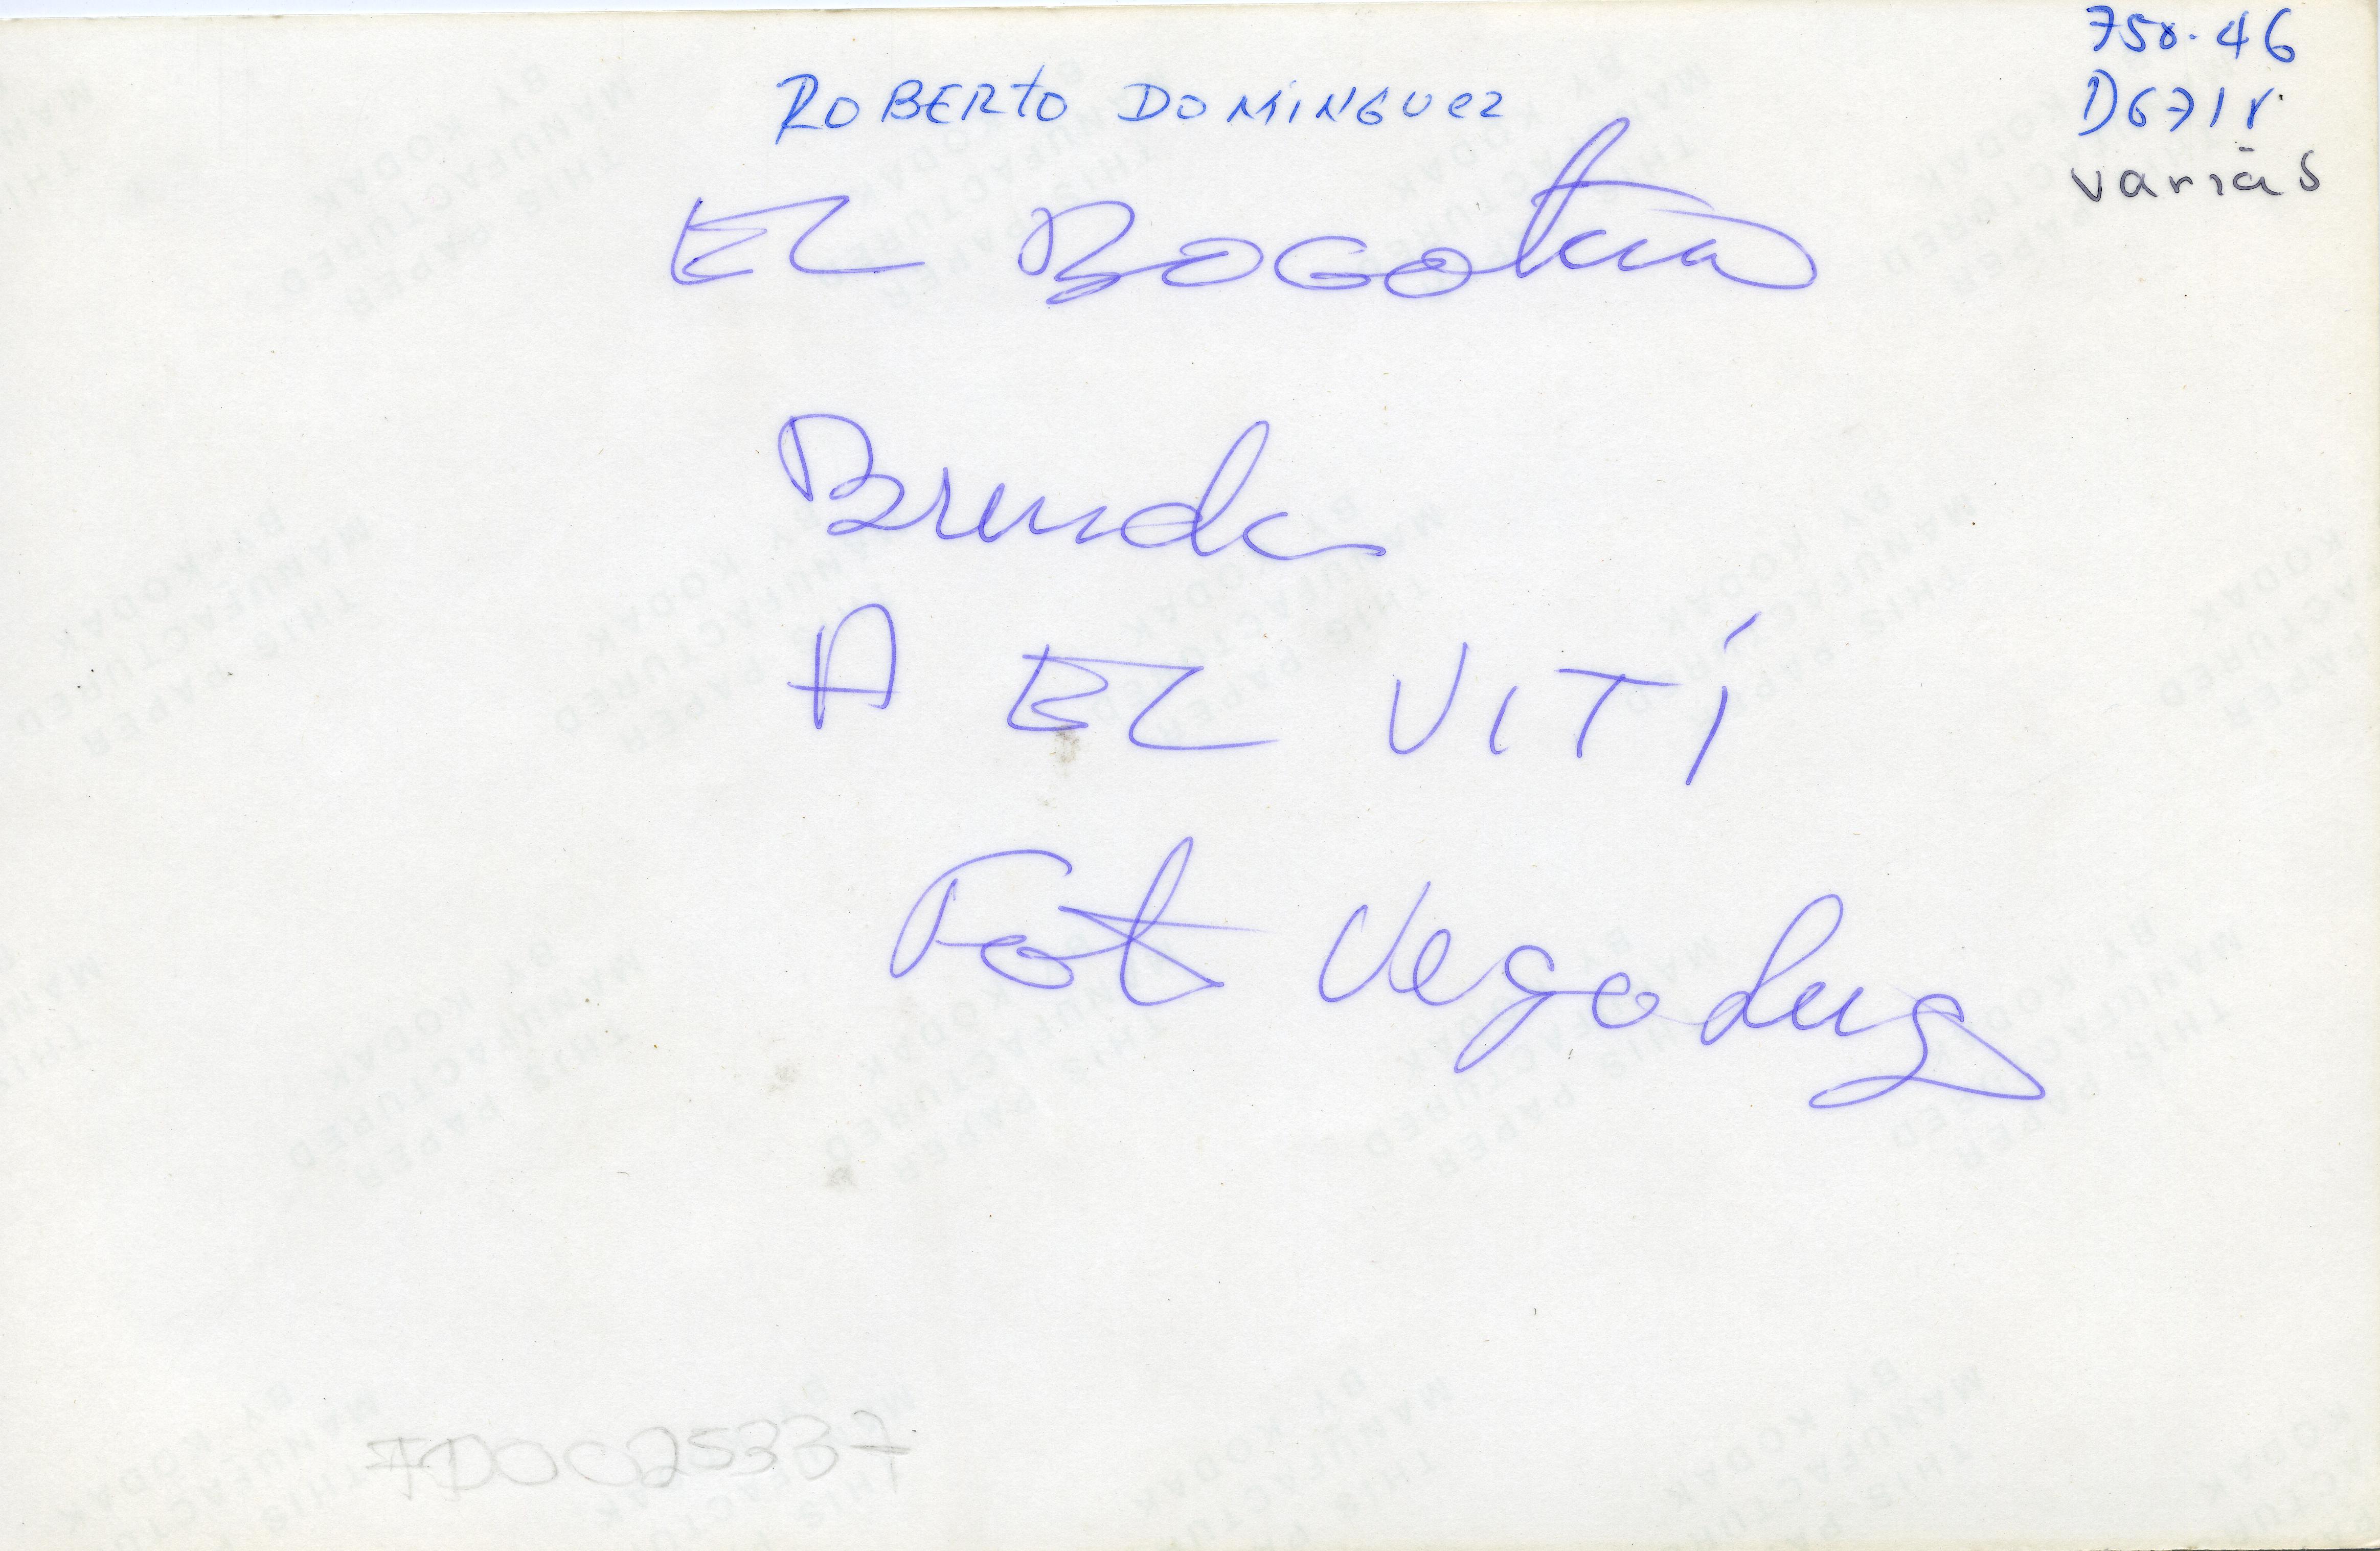 758.46
D671r.
varias
ROBERTO DOMINGUez
EL BOGOtano
Brinda
A EL VITÍ
Foto Vegaluz
FDOC25337
THIS PAPER
MANUFACTURED
BY KODAK